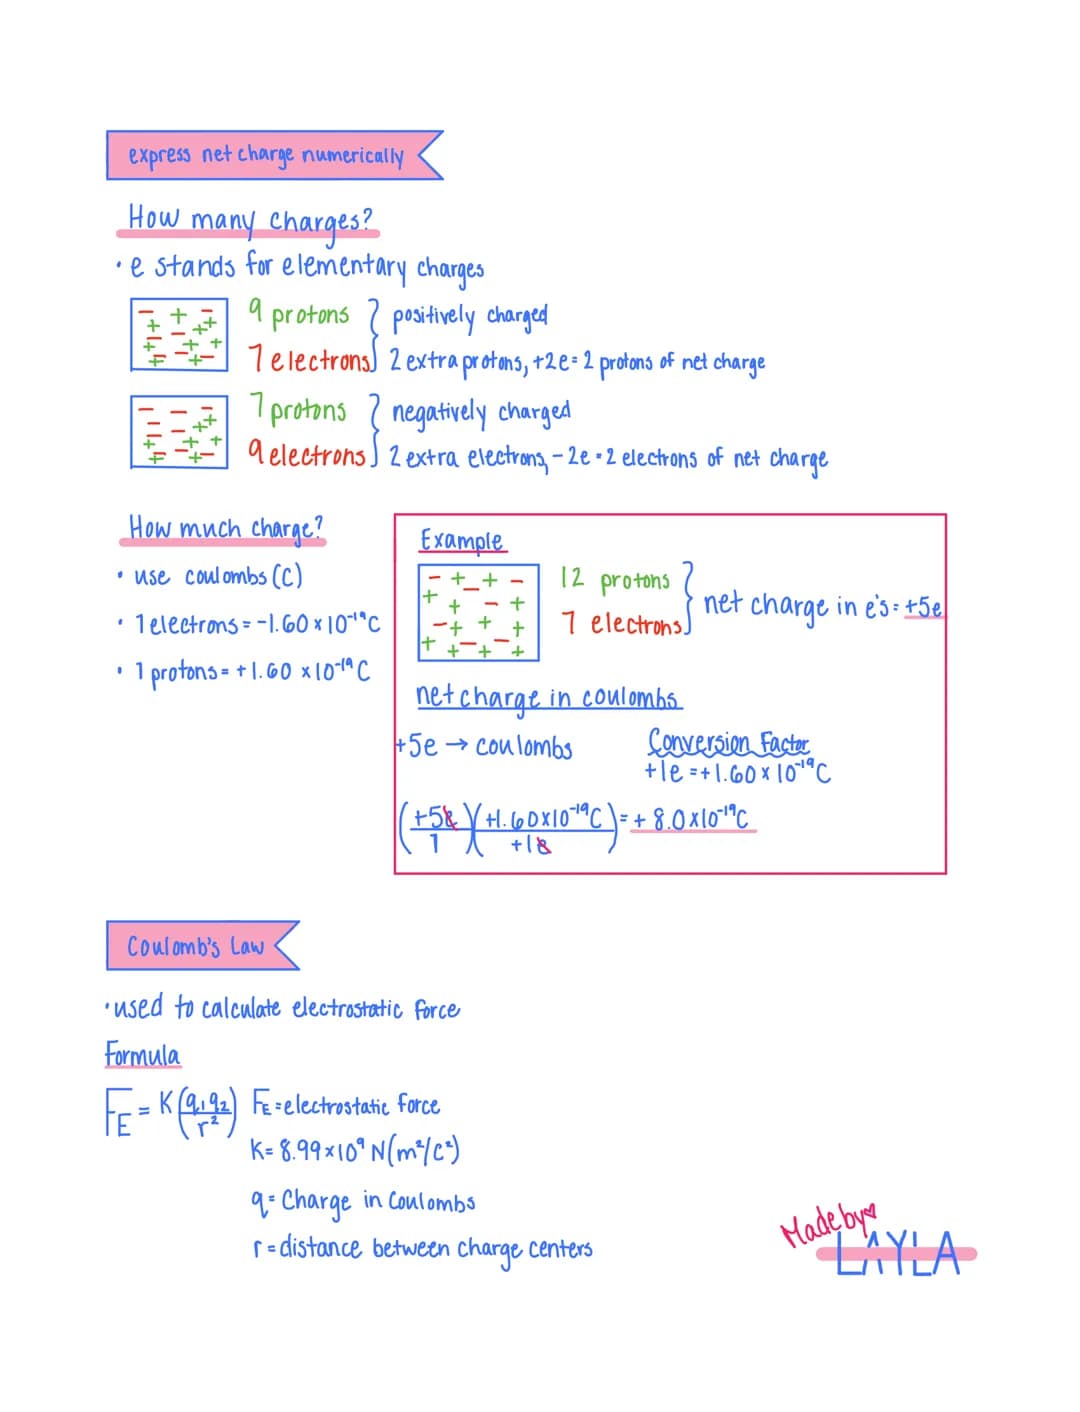 express net charge numerically
How many charges?
• e stands for elementary charges
9 protons } positively charged
7 electrons } 2 extra protons, +2e = 2 protons of net charge
7 protons } negatively charged
9 electrons } 2 extra electrons, -2e = 2 electrons of net charge
How much charge?
• use coulombs (C)
• 1 electrons = -1.60 × 10⁻¹⁹ C
• 1 protons = +1.60 × 10⁻¹⁹ C
Example
12 protons
7 electrons } net charge in e's = +5e
net charge in coulombs
+5e → coulombs
Conversion Factor
+1e = +1.60 × 10⁻¹⁹ C
(+5e/1)(+1.60×10⁻¹⁹C/+1e) = + 8.0×10⁻¹⁹C
Coulomb's Law
• used to calculate electrostatic force
Formula
F_E = K(q₁q₂/r²)
F_E = electrostatic force
K = 8.99×10⁹ N(m²/c²)
q = Charge in Coulombs
r = distance between charge centers
Made by♡
LAYLA